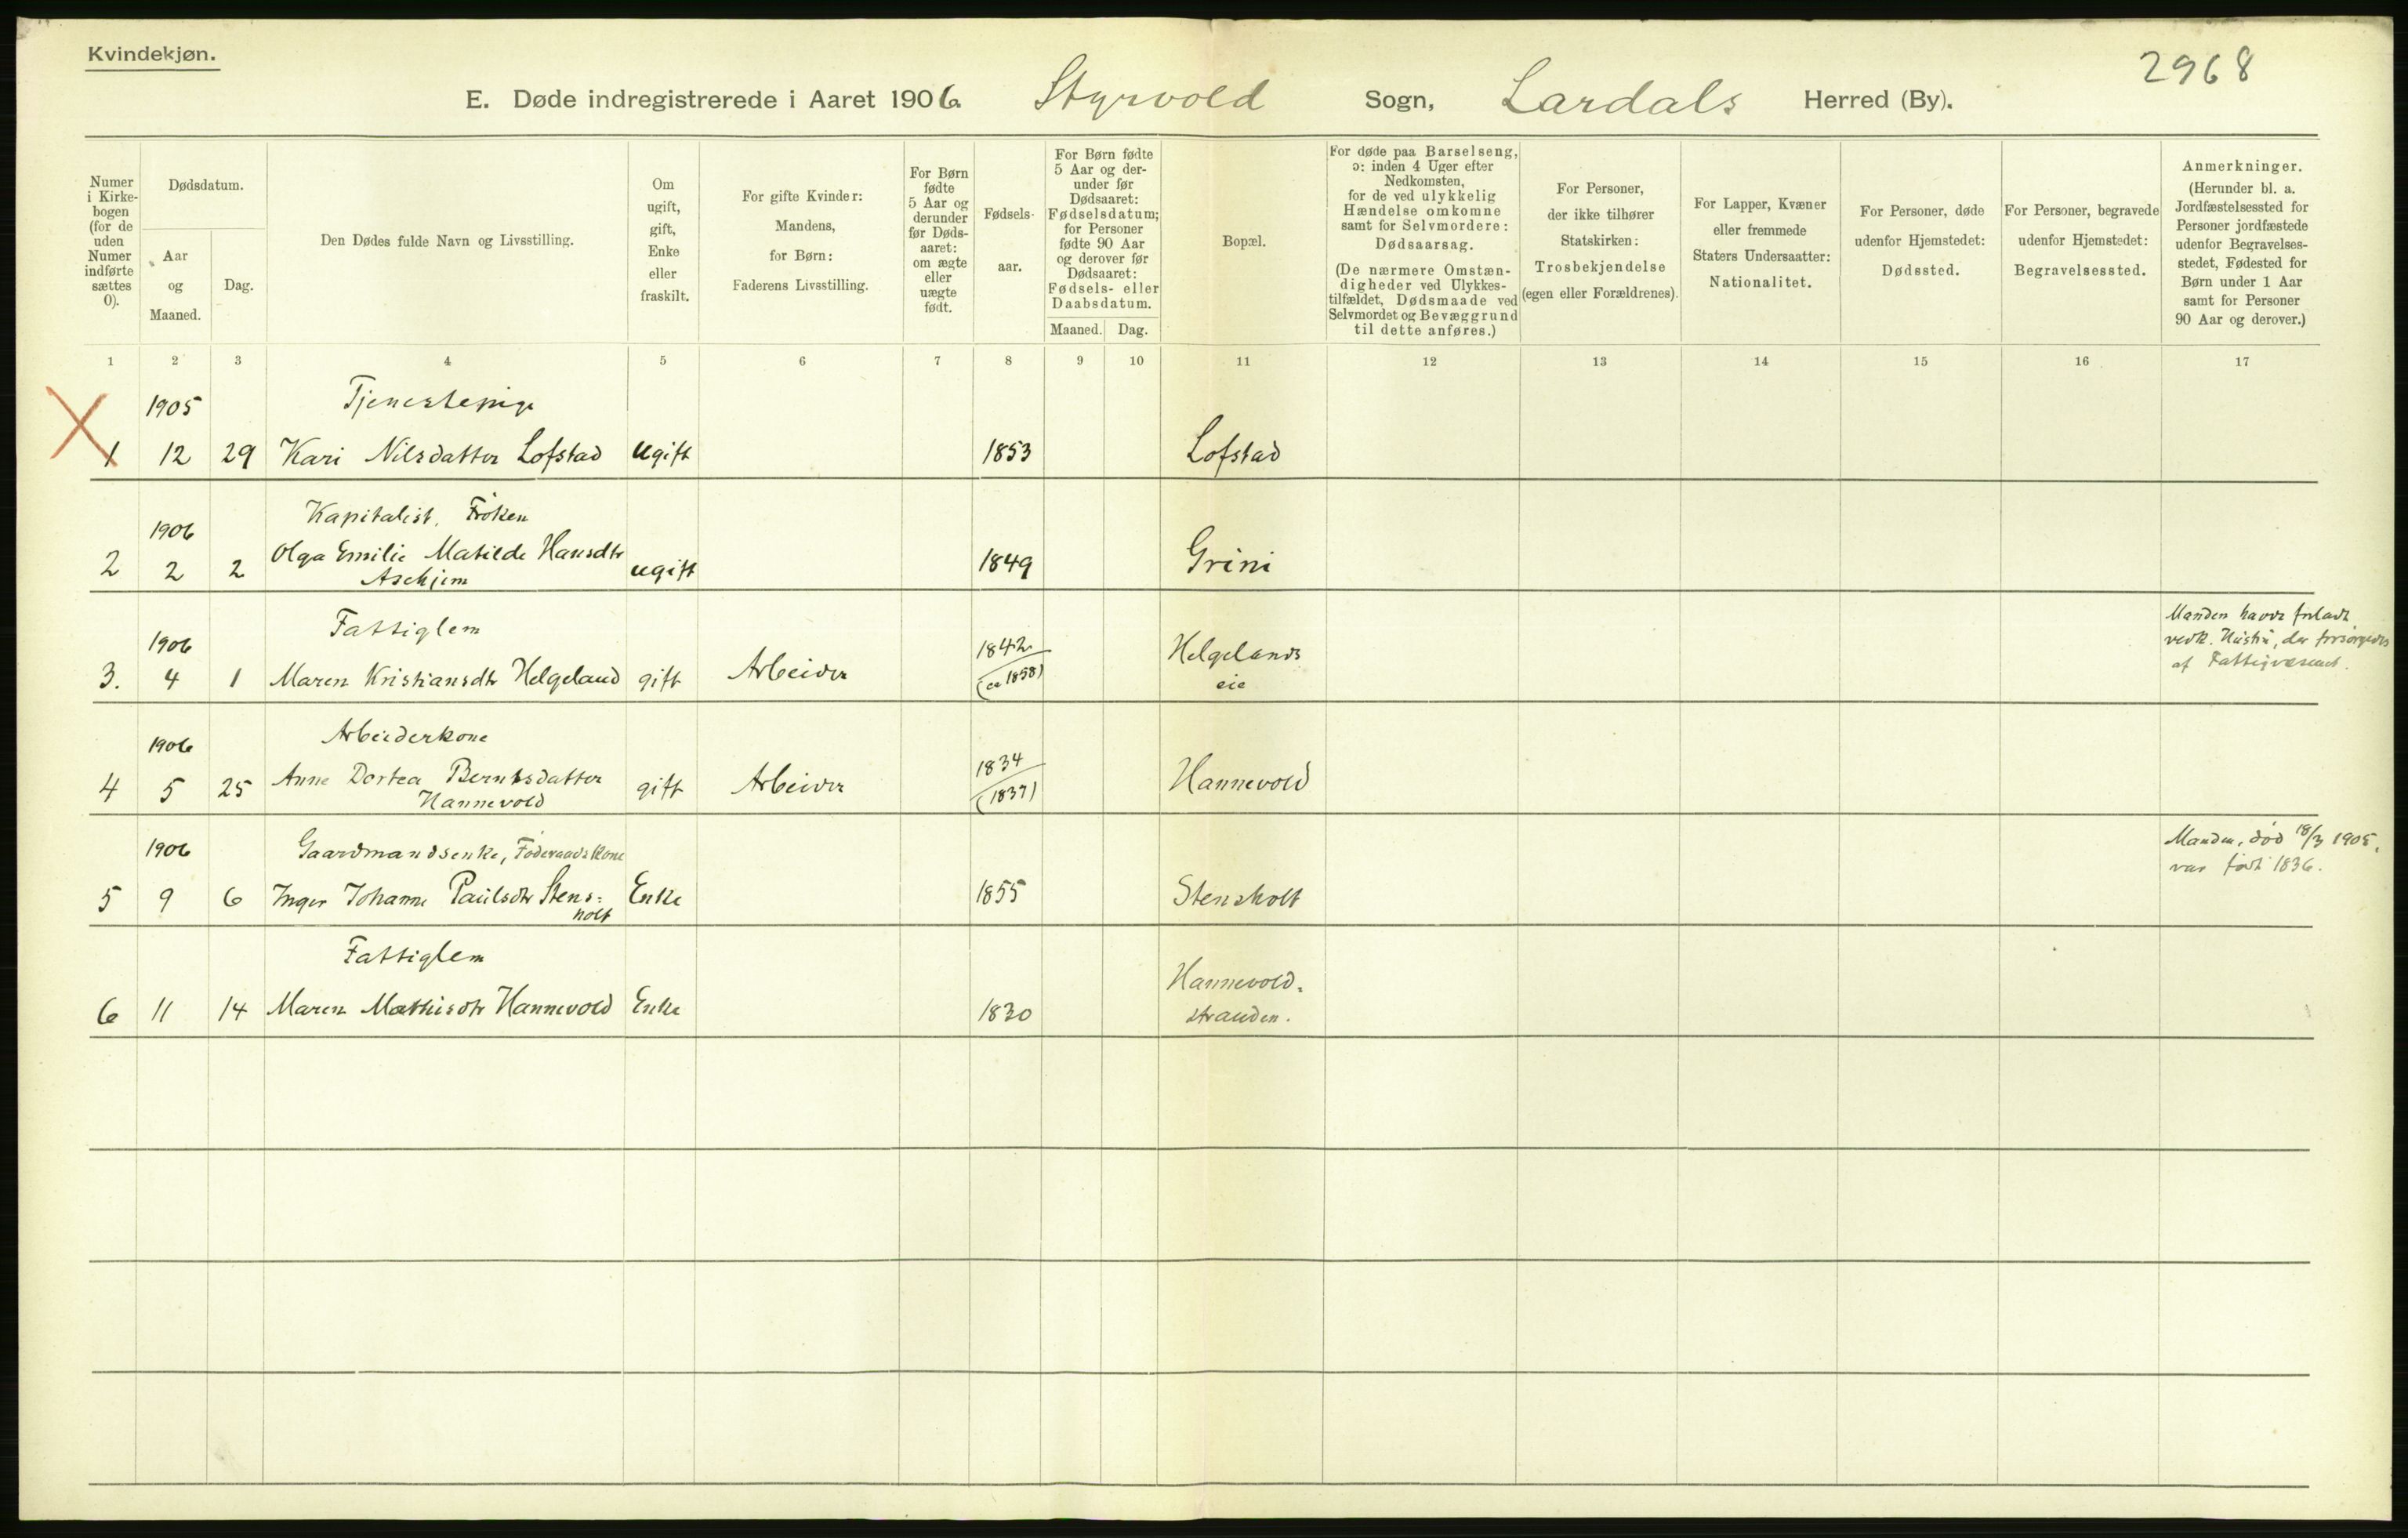 Kvindekjøn.
2968
E. Døde indregistrerede i Aaret 1906 Styrvold Sogn, Lardals Herred (By).
Numer i Kirkebogen (for de uden Numer indførte sættes 0).
Dødsdatum.
Aar og Maaned.
Dag.
Den Dødes fulde Navn og Livsstilling.
Om ugift, gift, Enke eller fraskilt.
For gifte Kvinder: Mandens, for Børn: Faderens Livsstilling.
For Børn fødte 5 Aar og derunder før Dødsaaret: om ægte eller uægte født.
Fødselsaar.
For Børn fødte 5 Aar og derunder før Dødsaaret: Fødselsdatum; for Personer fødte 90 Aar og derover før Dødsaaret: Fødsels- eller Daabsdatum.
Maaned. Dag.
Bopæl.
For døde paa Barselseng, ɔ: inden 4 Uger efter Nedkomsten, for de ved ulykkelig Hændelse omkomne samt for Selvmordere: Dødsaarsag.
(De nærmere Omstændigheder ved Ulykkestilfældet, Dødsmaade ved Selvmordet og Bevæggrund til dette anføres.)
For Personer, der ikke tilhører Statskirken: Trosbekjendelse (egen eller Forældrenes).
For Lapper, Kvæner eller fremmede Staters Undersaatter: Nationalitet.
For Personer, døde udenfor Hjemstedet: Dødssted.
For Personer, begravede udenfor Hjemstedet: Begravelsessted.
Anmerkninger.
(Herunder bl. a. Jordfæstelsessted for Personer jordfæstede udenfor Begravelsesstedet, Fødested for Børn under 1 Aar samt for Personer 90 Aar og derover.)
1 2 3 4 5 6 7 8 9 10 11 12 13 14 15 16 17
1905 Tjenestepige
1 12 29 Kari Nilsdatter Lofstad Ugift 1853 Lofstad
Kapitalist, Frøken
1906
2 2 2 Olga Emilie Matilde Hansdtr ugift 1849 Grini
Askjem
Fattiglem
1906 1842 Helgelands
3. 4 1 Maren Kristiansdtr Helgeland gift Arbeider (ca 1858) eie
Manden havde forladt
vedk. Hustru, der forsørgedes
af Fattigvæsenet.
Arbeiderkone
1906 1834
4 5 25 Anne Dortea Berntsdatter gift Arbeider (1837) Hannevold
Hannevold
1906 Gaardmandsenke, Føderaadskone
5 9 6 Inger Johanne Paulsdtr Stens= Enke 1855 Stensholt
holt
Manden, død 18/3 1905,
var født 1836.
Fattiglem
Hannevold=
6 11 14 Maren Mathisdtr Hannevold Enke 1830 stranden.